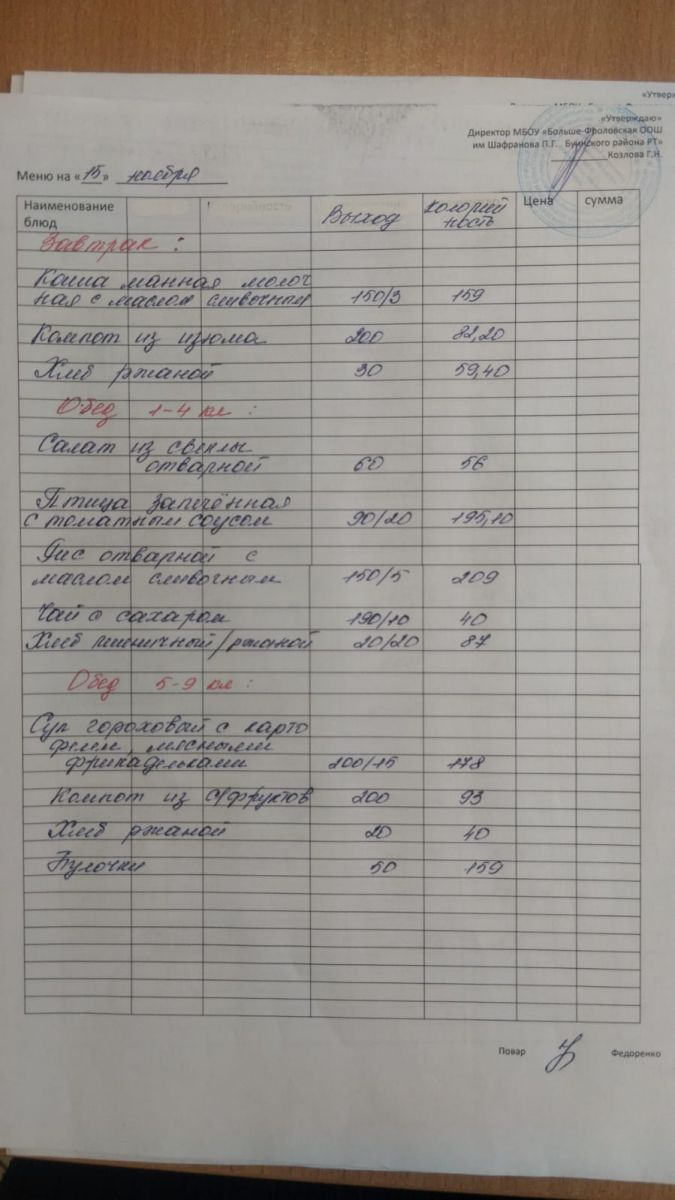 «Утверж
«Утверждаю»
Директор МБОУ «Больше-Фроловская ООШ
им Шафранова П.Г. , Буинского района РТ»
Козлова Г.Н.
Меню на « 15 » ноября
Наименование блюд Выход Колорий ность Цена сумма
Завтрак :
Каша манная молоч
ная с маслом сливочным 150/3 159
Компот из изюма 200 82,20
Хлеб ржаной 30 59,40
Обед 1-4 кл :
Салат из свеклы
отварной 60 56
Птица запечённая
с томатным соусом 90/20 195,10
Рис отварной с
маслом сливочным 150/5 209
Чай с сахаром 190/10 40
Хлеб пшеничный/ржаной 20/20 87
Обед 5-9 кл :
Суп гороховый с карто
фелем, мясными
фрикадельками 200/15 178
Компот из с/фруктов 200 93
Хлеб ржаной 20 40
Булочки 50 159
Повар Федоренко